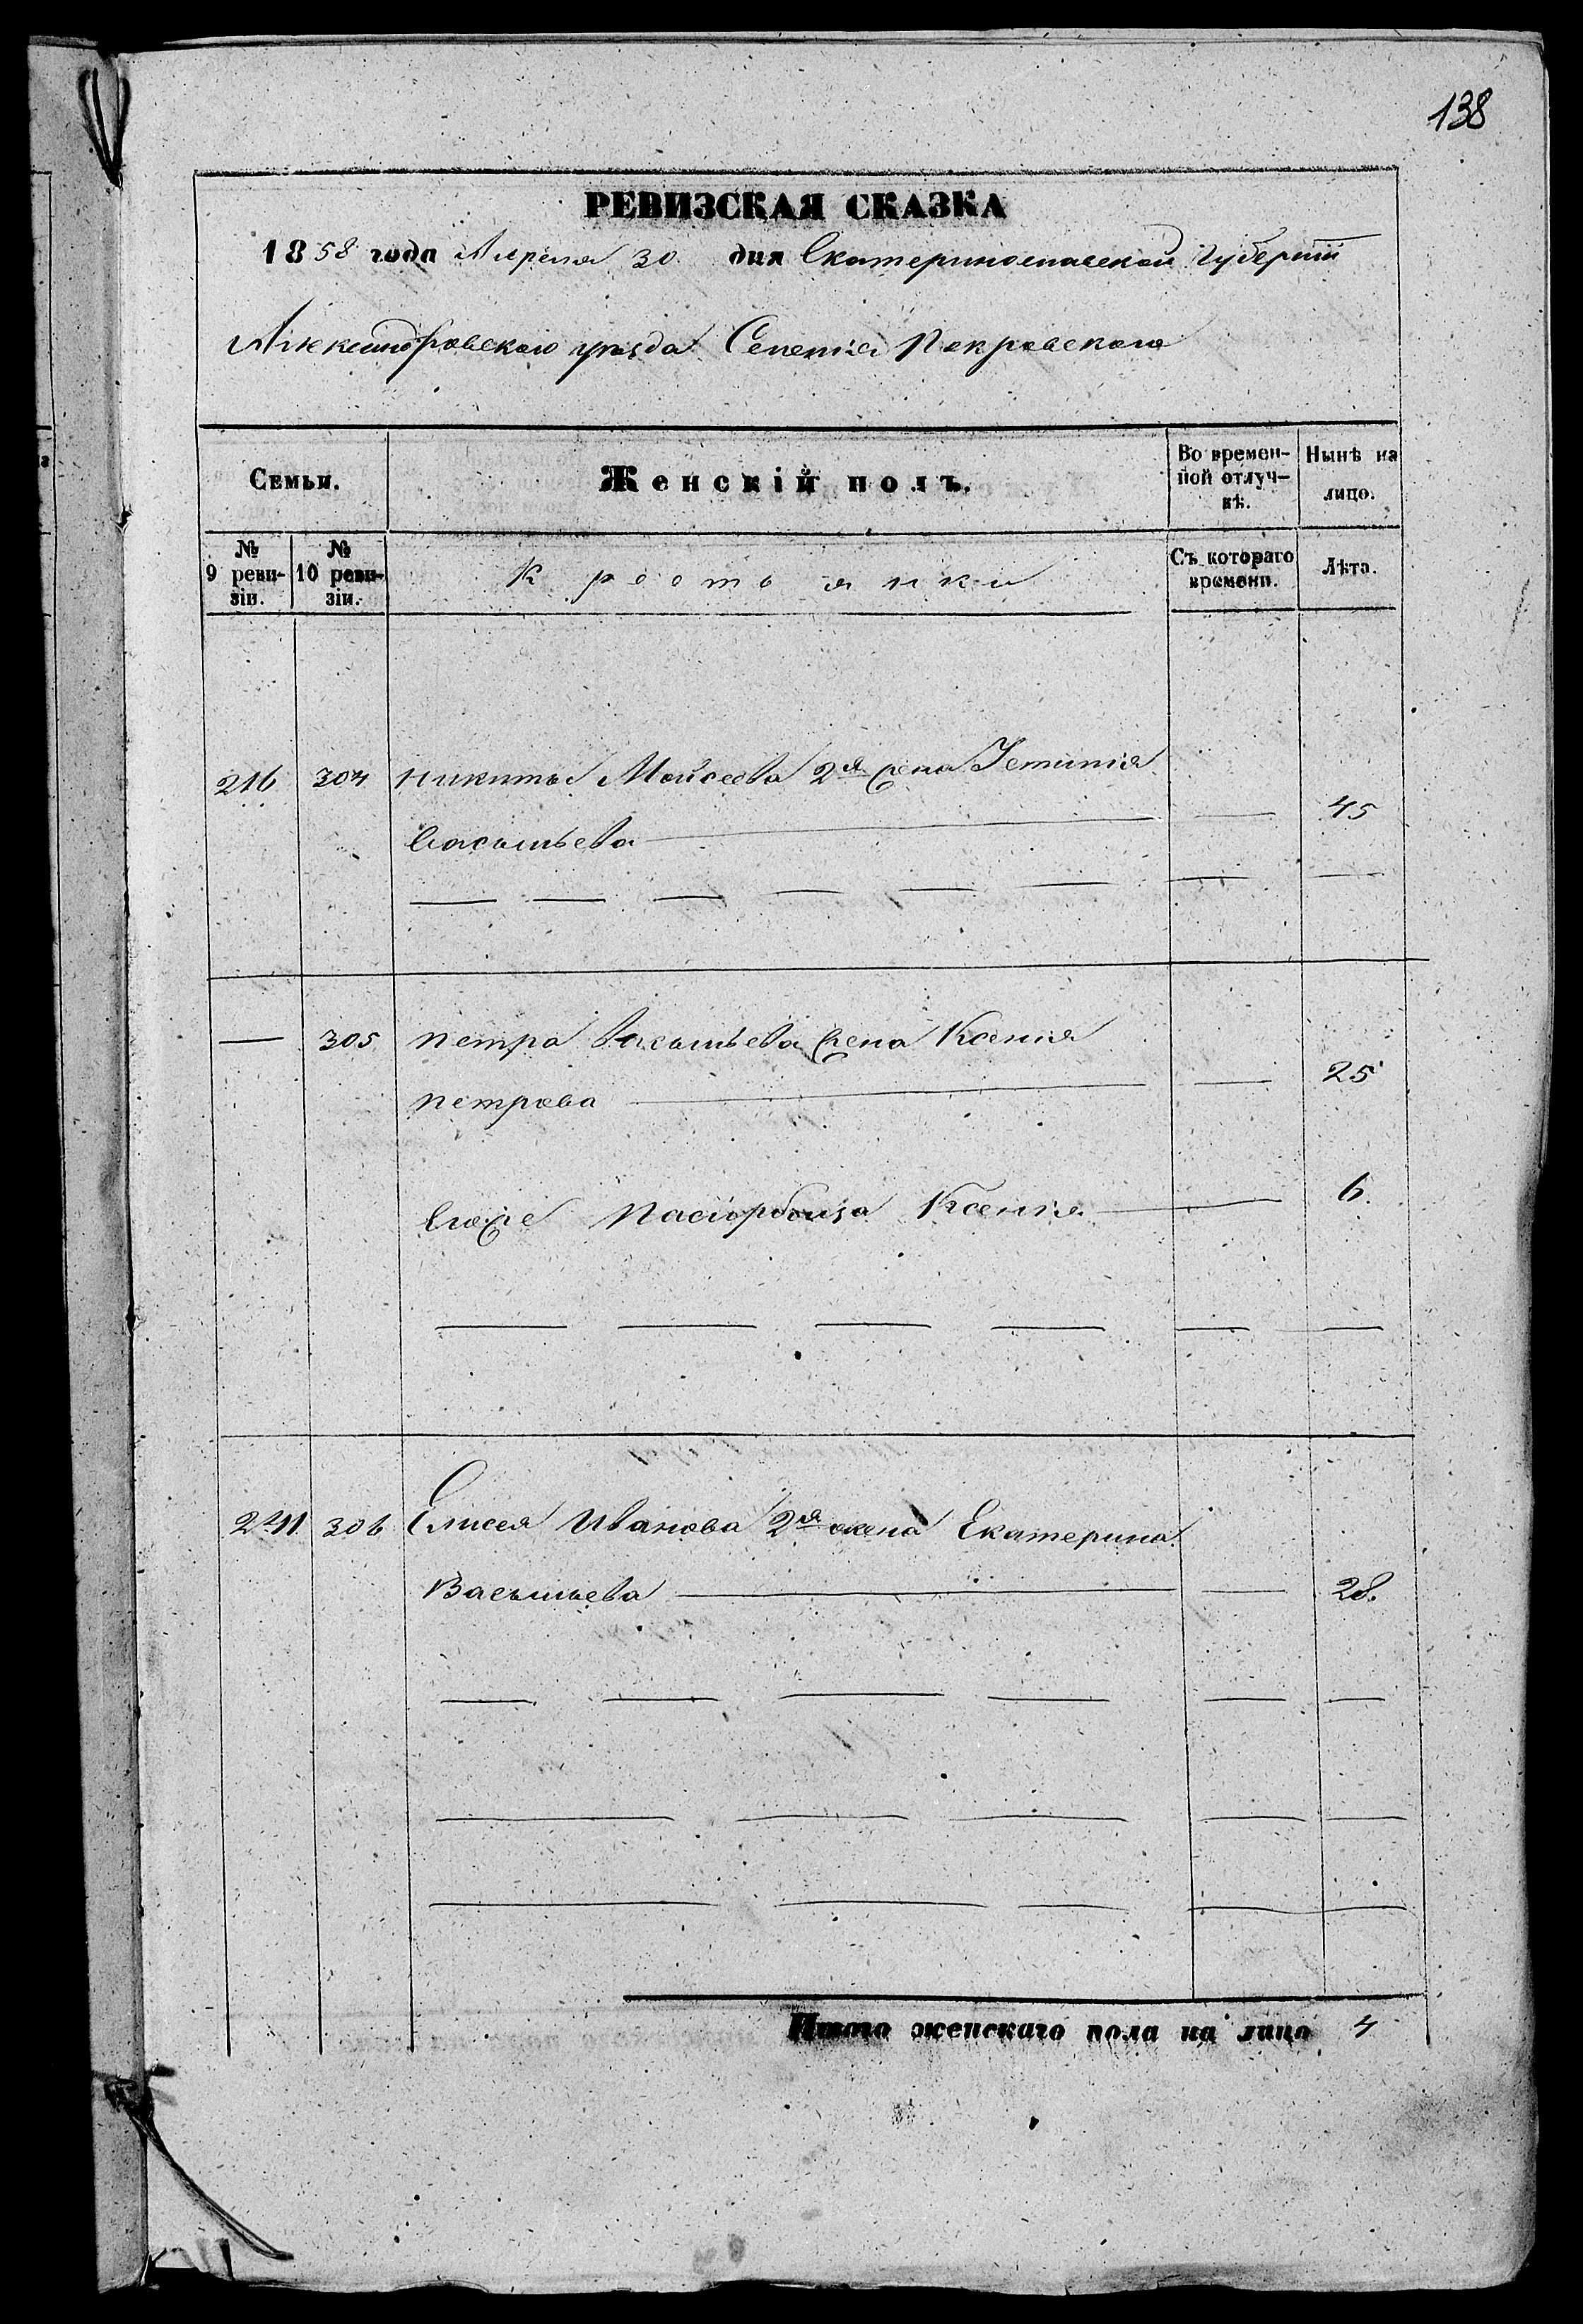 138
РЕВИЗСКАЯ СКАЗКА
1858 года Апреля 30 дня Екатеринославской Губерніи
Александровского уезда Селенія Покровского
Семьи.
Женскій полъ.
Во времен-
ной отлуч-
кѣ.
Нынѣ на
лицо.
№
9 реви-
зіи.
№
10 реви-
зіи.
Крестьянки
Съ котораго
времени.
Лѣта.
216 304 Никиты Мойсеева 2я жена
Васильева 45
305 Петра Васильева жена Ксенія
Петрова 25
Ево же Ксенія 6
241 306 Елисея Иванова 2я жена Екатерина
Васильева 28.
Итого женскаго пола на лицо 4